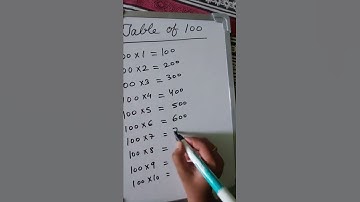 Table of 100
00 × 1 = 100
00 × 2 = 200
00 × 3 = 300
100 × 4 = 400
100 × 5 = 500
100 × 6 = 600
100 × 7 =
100 × 8 =
100 × 9 =
100 × 10 =